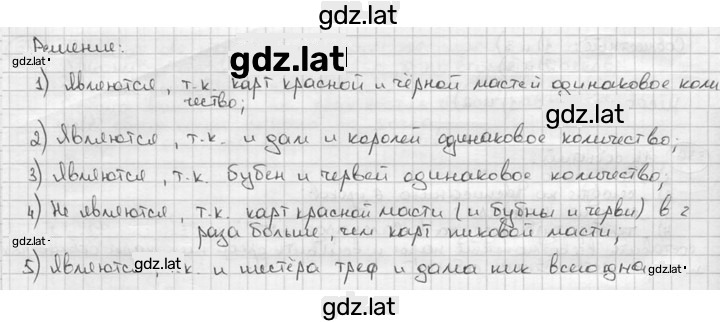 gdz.lat
Решение:
gdz.lat
gdz.lat
1) Являются, т.к. карт красной и чёрной мастей одинаковое коли
чество;
gdz.lat
2) Являются, т.к. и дам и королей одинаковое количество;
3) Являются, т.к. бубен и червей одинаковое количество;
4) Не являются, т.к. карт красной масти (и бубны и черви) в 2
gdz.lat
раза больше, чем карт пиковой масти;
5) Являются, т.к. и шестёра треф и дама пик всего одна
gdz.lat
gdz.lat
gdz.lat